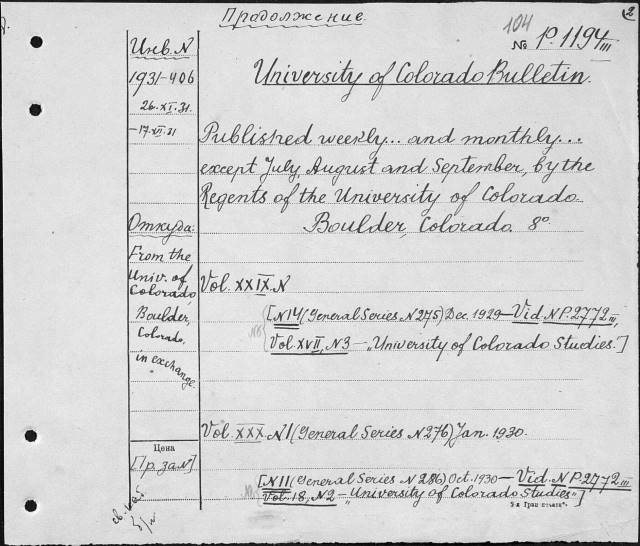 Продолжение.
2
104
№ P.1194 III
Инв. N
1931-406
26.XI.31.
-17.XII.31
Откуда:
From the
Univ. of
Colorado,
Boulder,
Colorado,
in exchange.
Цена
[Пр. за N]
University of Colorado Bulletin.
Published weekly... and monthly...
except July, August and September, by the
Regents of the University of Colorado.
Boulder, Colorado. 8°
Vol. XXIX. N
[N14 (General Series N275) Dec. 1929 — Vid. N P. 2772 III,
Vol. XVII, N3 — „University of Colorado Studies."]
Vol. XXX. N1 (General Series N276) Jan. 1930.
[N11 (General Series N286) Oct. 1930 — Vid. N P. 2772 III
Vol. 18, N2 — „University of Colorado Studies"]